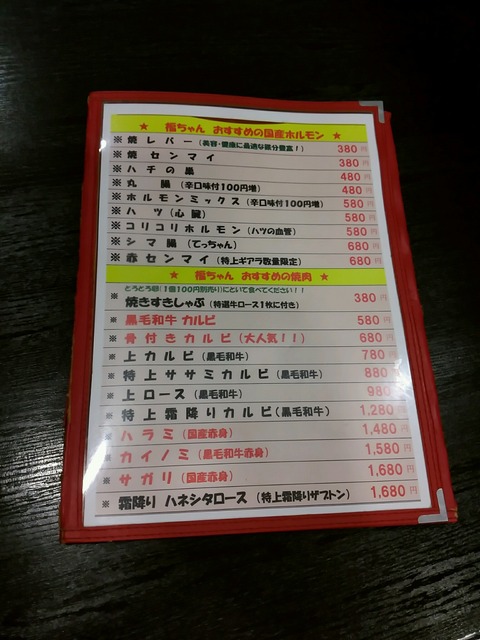 ★ 福ちゃん おすすめの国産ホルモン ★
※ 焼 レバー (美容・健康に最適な鉄分豊富!) 380 円
※ 焼 センマイ 380 円
※ ハチの巣 480 円
※ 丸 腸 (辛口味付100円増) 480 円
※ ホルモンミックス (辛口味付100円増) 580 円
※ ハツ (心臓) 580 円
※ コリコリホルモン (ハツの血管) 580 円
※ シマ腸 (てっちゃん) 680 円
※ 赤センマイ (特上ギアラ数量限定) 680 円
★ 福ちゃん おすすめの焼肉 ★
とろとろ卵(1個100円別売り)にといて食べてください!!
※ 焼きすきしゃぶ (特選牛ロース1枚に付き) 380 円
※ 黒毛和牛 カルビ 580 円
※ 骨付きカルビ (大人気!!) 680 円
※ 上カルビ (黒毛和牛) 780 円
※ 特上ササミカルビ (黒毛和牛) 880 円
※ 上ロース (黒毛和牛) 980 円
※ 特上霜降りカルビ (黒毛和牛) 1,280 円
※ ハラミ (国産赤身) 1,480 円
※ カイノミ (黒毛和牛赤身) 1,580 円
※ サガリ (国産赤身) 1,680 円
※ 霜降り ハネシタロース (特上霜降りザブトン) 1,680 円